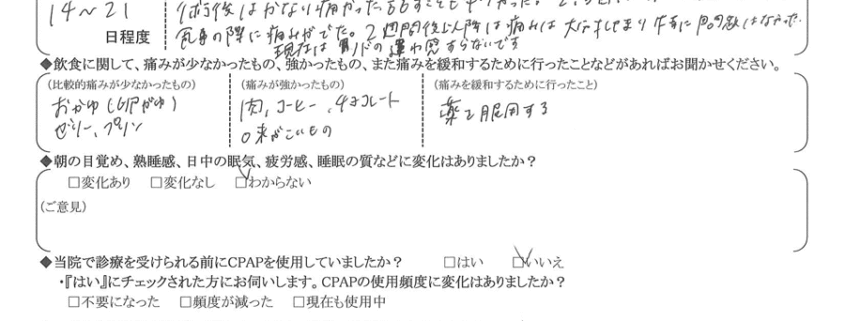 14～21
日程度
術後はかなり痛かった
食事の際に痛みがでた。2週間後以降は痛みは大分おさまり特に問題はなかった。
現在は
◆飲食に関して、痛みが少なかったもの、強かったもの、また痛みを緩和するために行ったことなどがあればお聞かせください。
(比較的痛みが少なかったもの)
おかゆ(
ゼリー、プリン
(痛みが強かったもの)
肉、コーヒー、チョコレート
味がこいもの
(痛みを緩和するために行ったこと)
薬を服用する
◆朝の目覚め、熟睡感、日中の眠気、疲労感、睡眠の質などに変化はありましたか？
□変化あり □変化なし □わからない
(ご意見)
◆当院で診療を受けられる前にCPAPを使用していましたか？ □はい □いいえ
・『はい』にチェックされた方にお伺いします。CPAPの使用頻度に変化はありましたか？
□不要になった □頻度が減った □現在も使用中